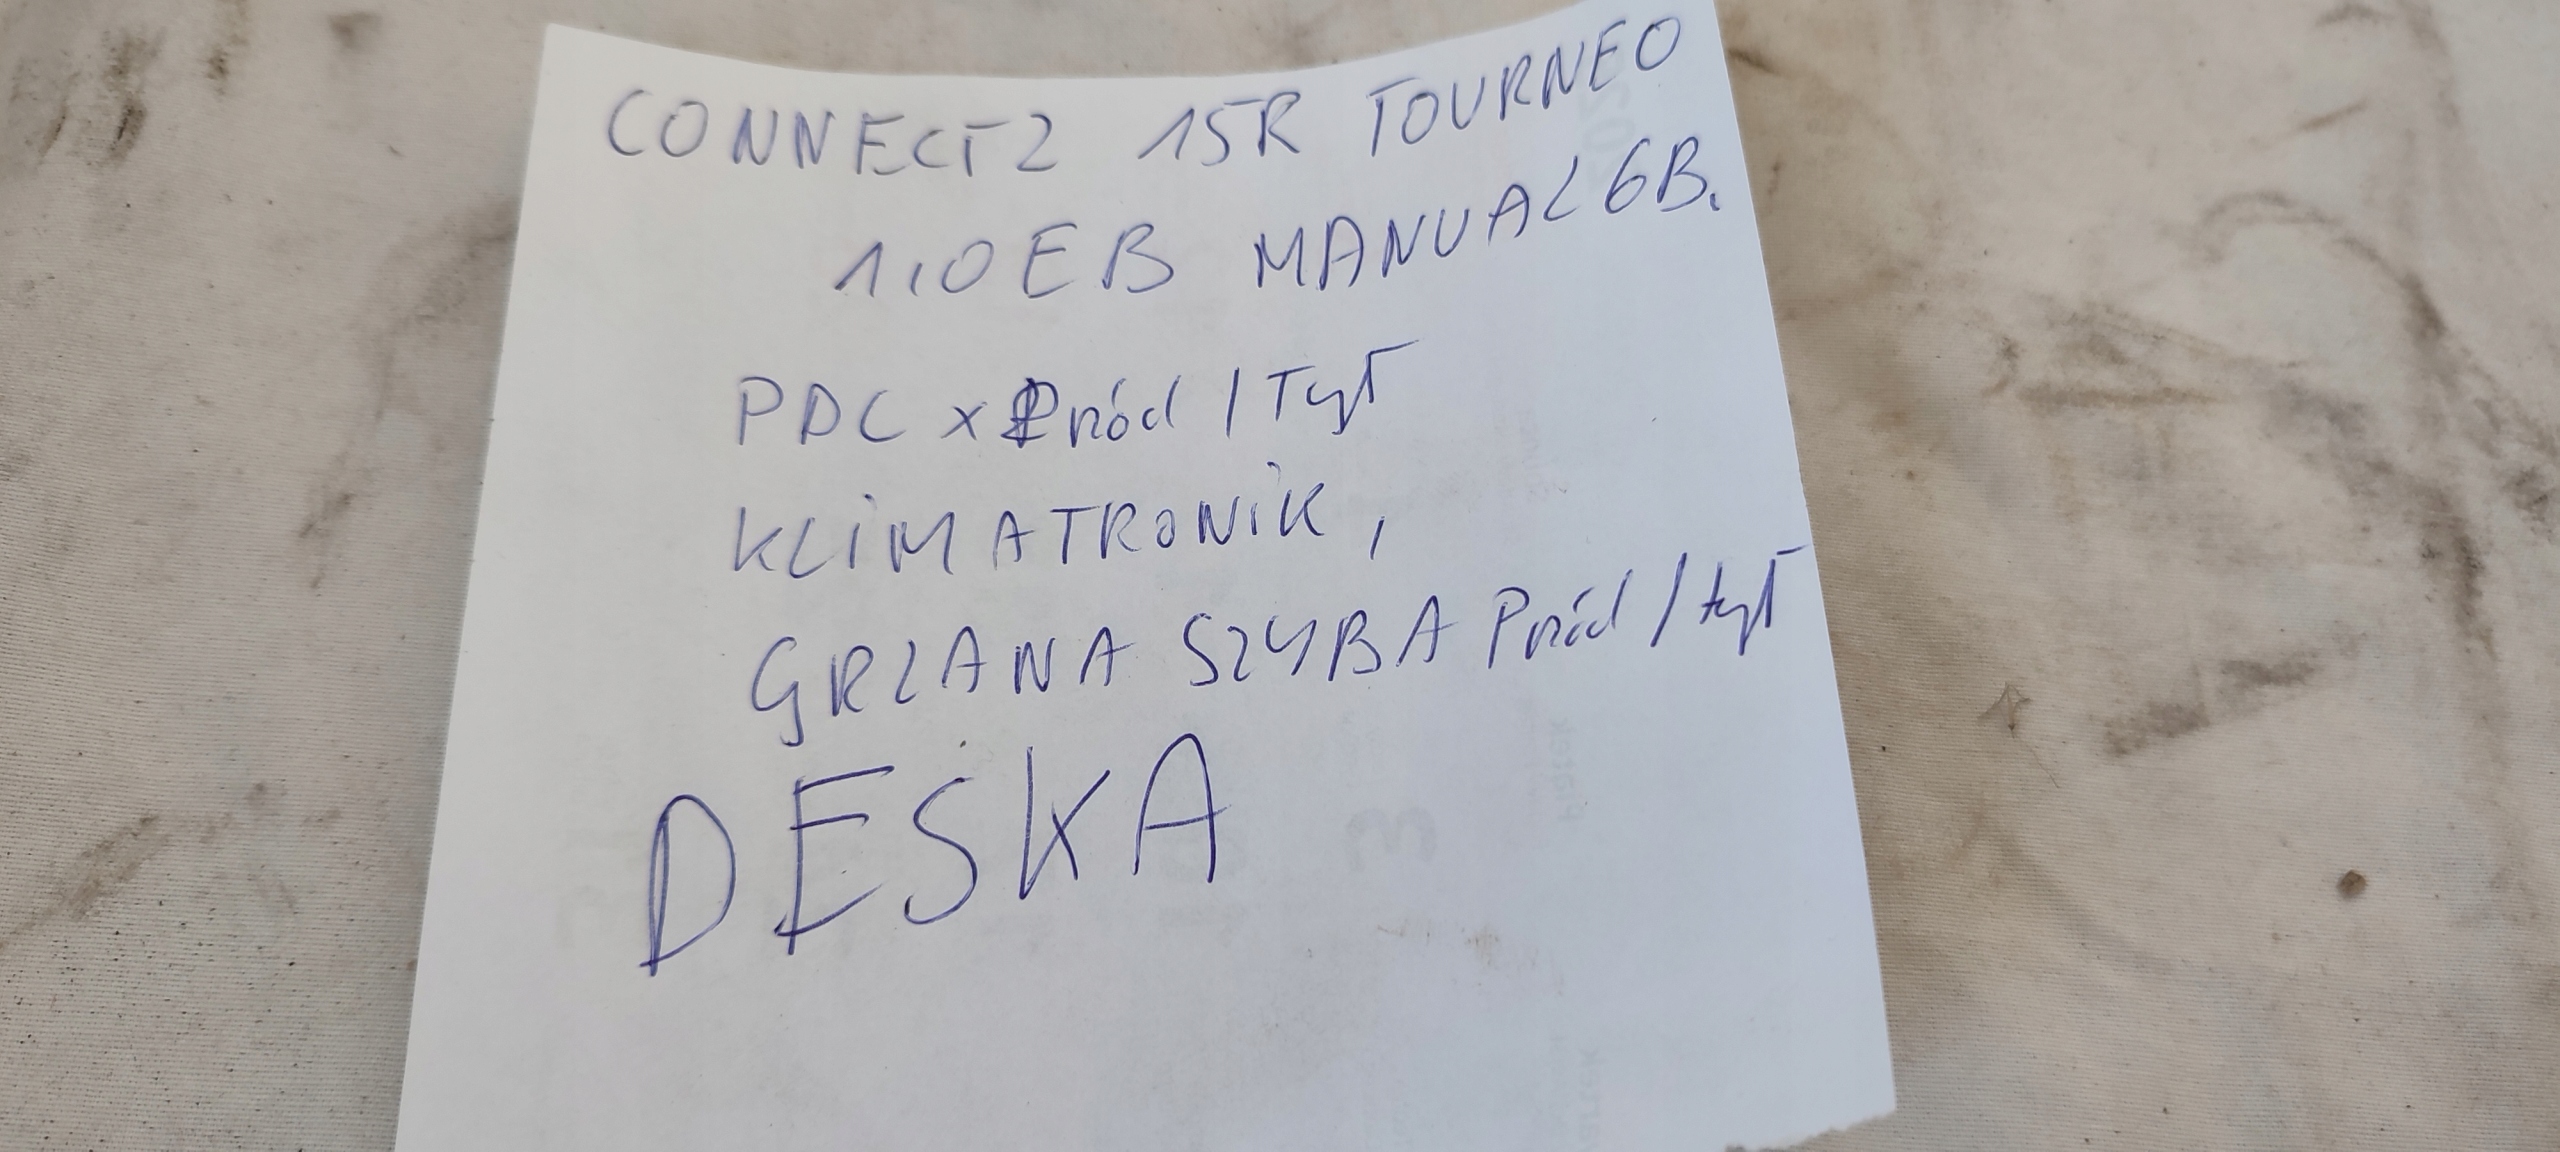 CONNECT 2 15R TOURNEO
1.0 EB MANUAL 6B.
PDC x Przód / Tył
KLiMATRONiK,
GRZANA SZYBA Przód / tył
DESKA